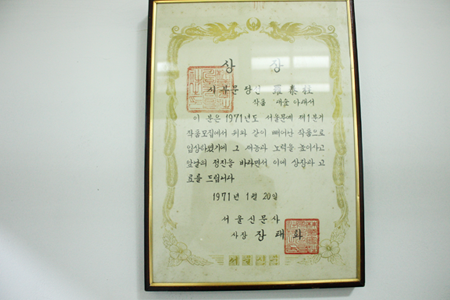 상 상
사 부문 당선
작품
이 분은 1971년도 서울문예 제1분기
작품모집에서 위와 같이 뛰어난 작품으로
입상하였기에 그 재능과 노력을 높이사고
앞날의 정진을 바라면서 이에 상장과 고
료를 드립니다
1971년 1월 20일
서울신문사
사장 장태화